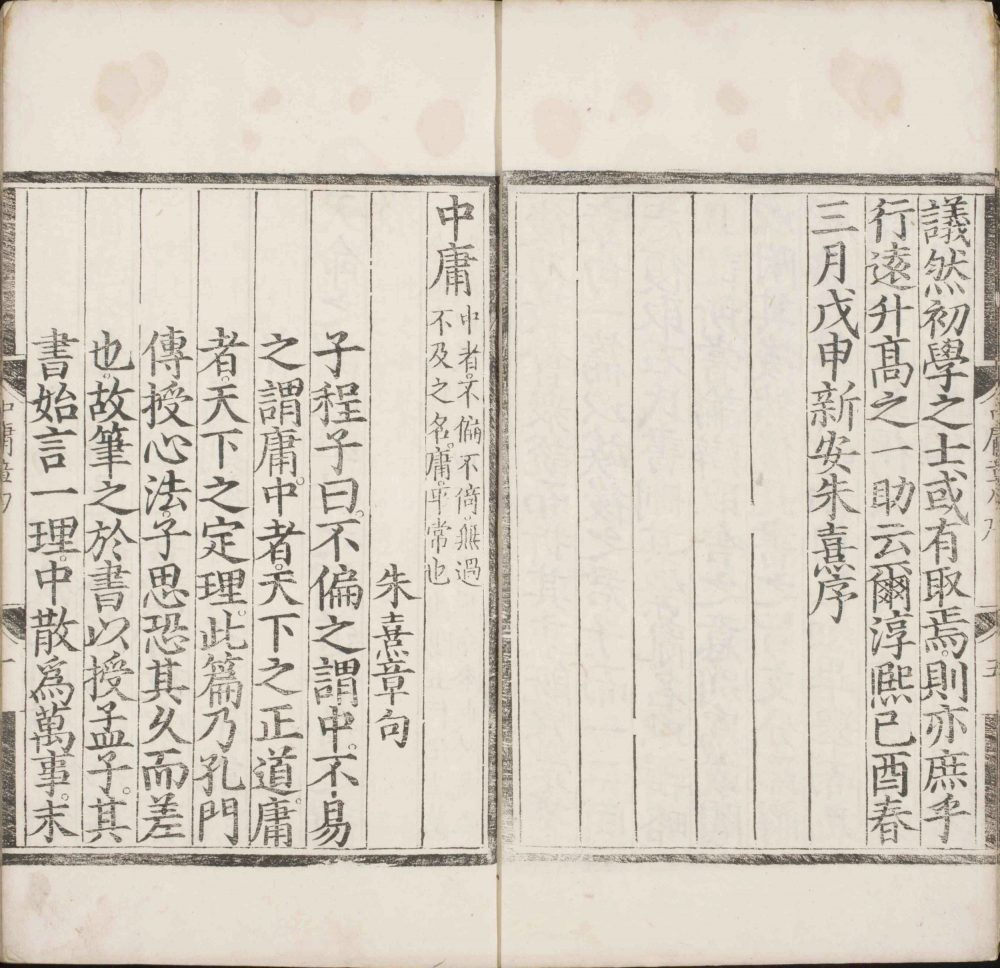 議然初學之士或有取焉則亦庶乎
行遠升髙之一助云爾淳熈己酉春
三月戊申新安朱熹序
五
中庸
中者。不偏不倚。無過
不及之名。庸。平常也
朱熹章句
子程子曰。不偏之謂中。不易
之謂庸。中者。天下之正道。庸
者。天下之定理。此篇乃孔門
傳授心法。子思恐其久而差
也。故筆之於書以授孟子。其
書始言一理。中散爲萬事。末
中庸章句
一